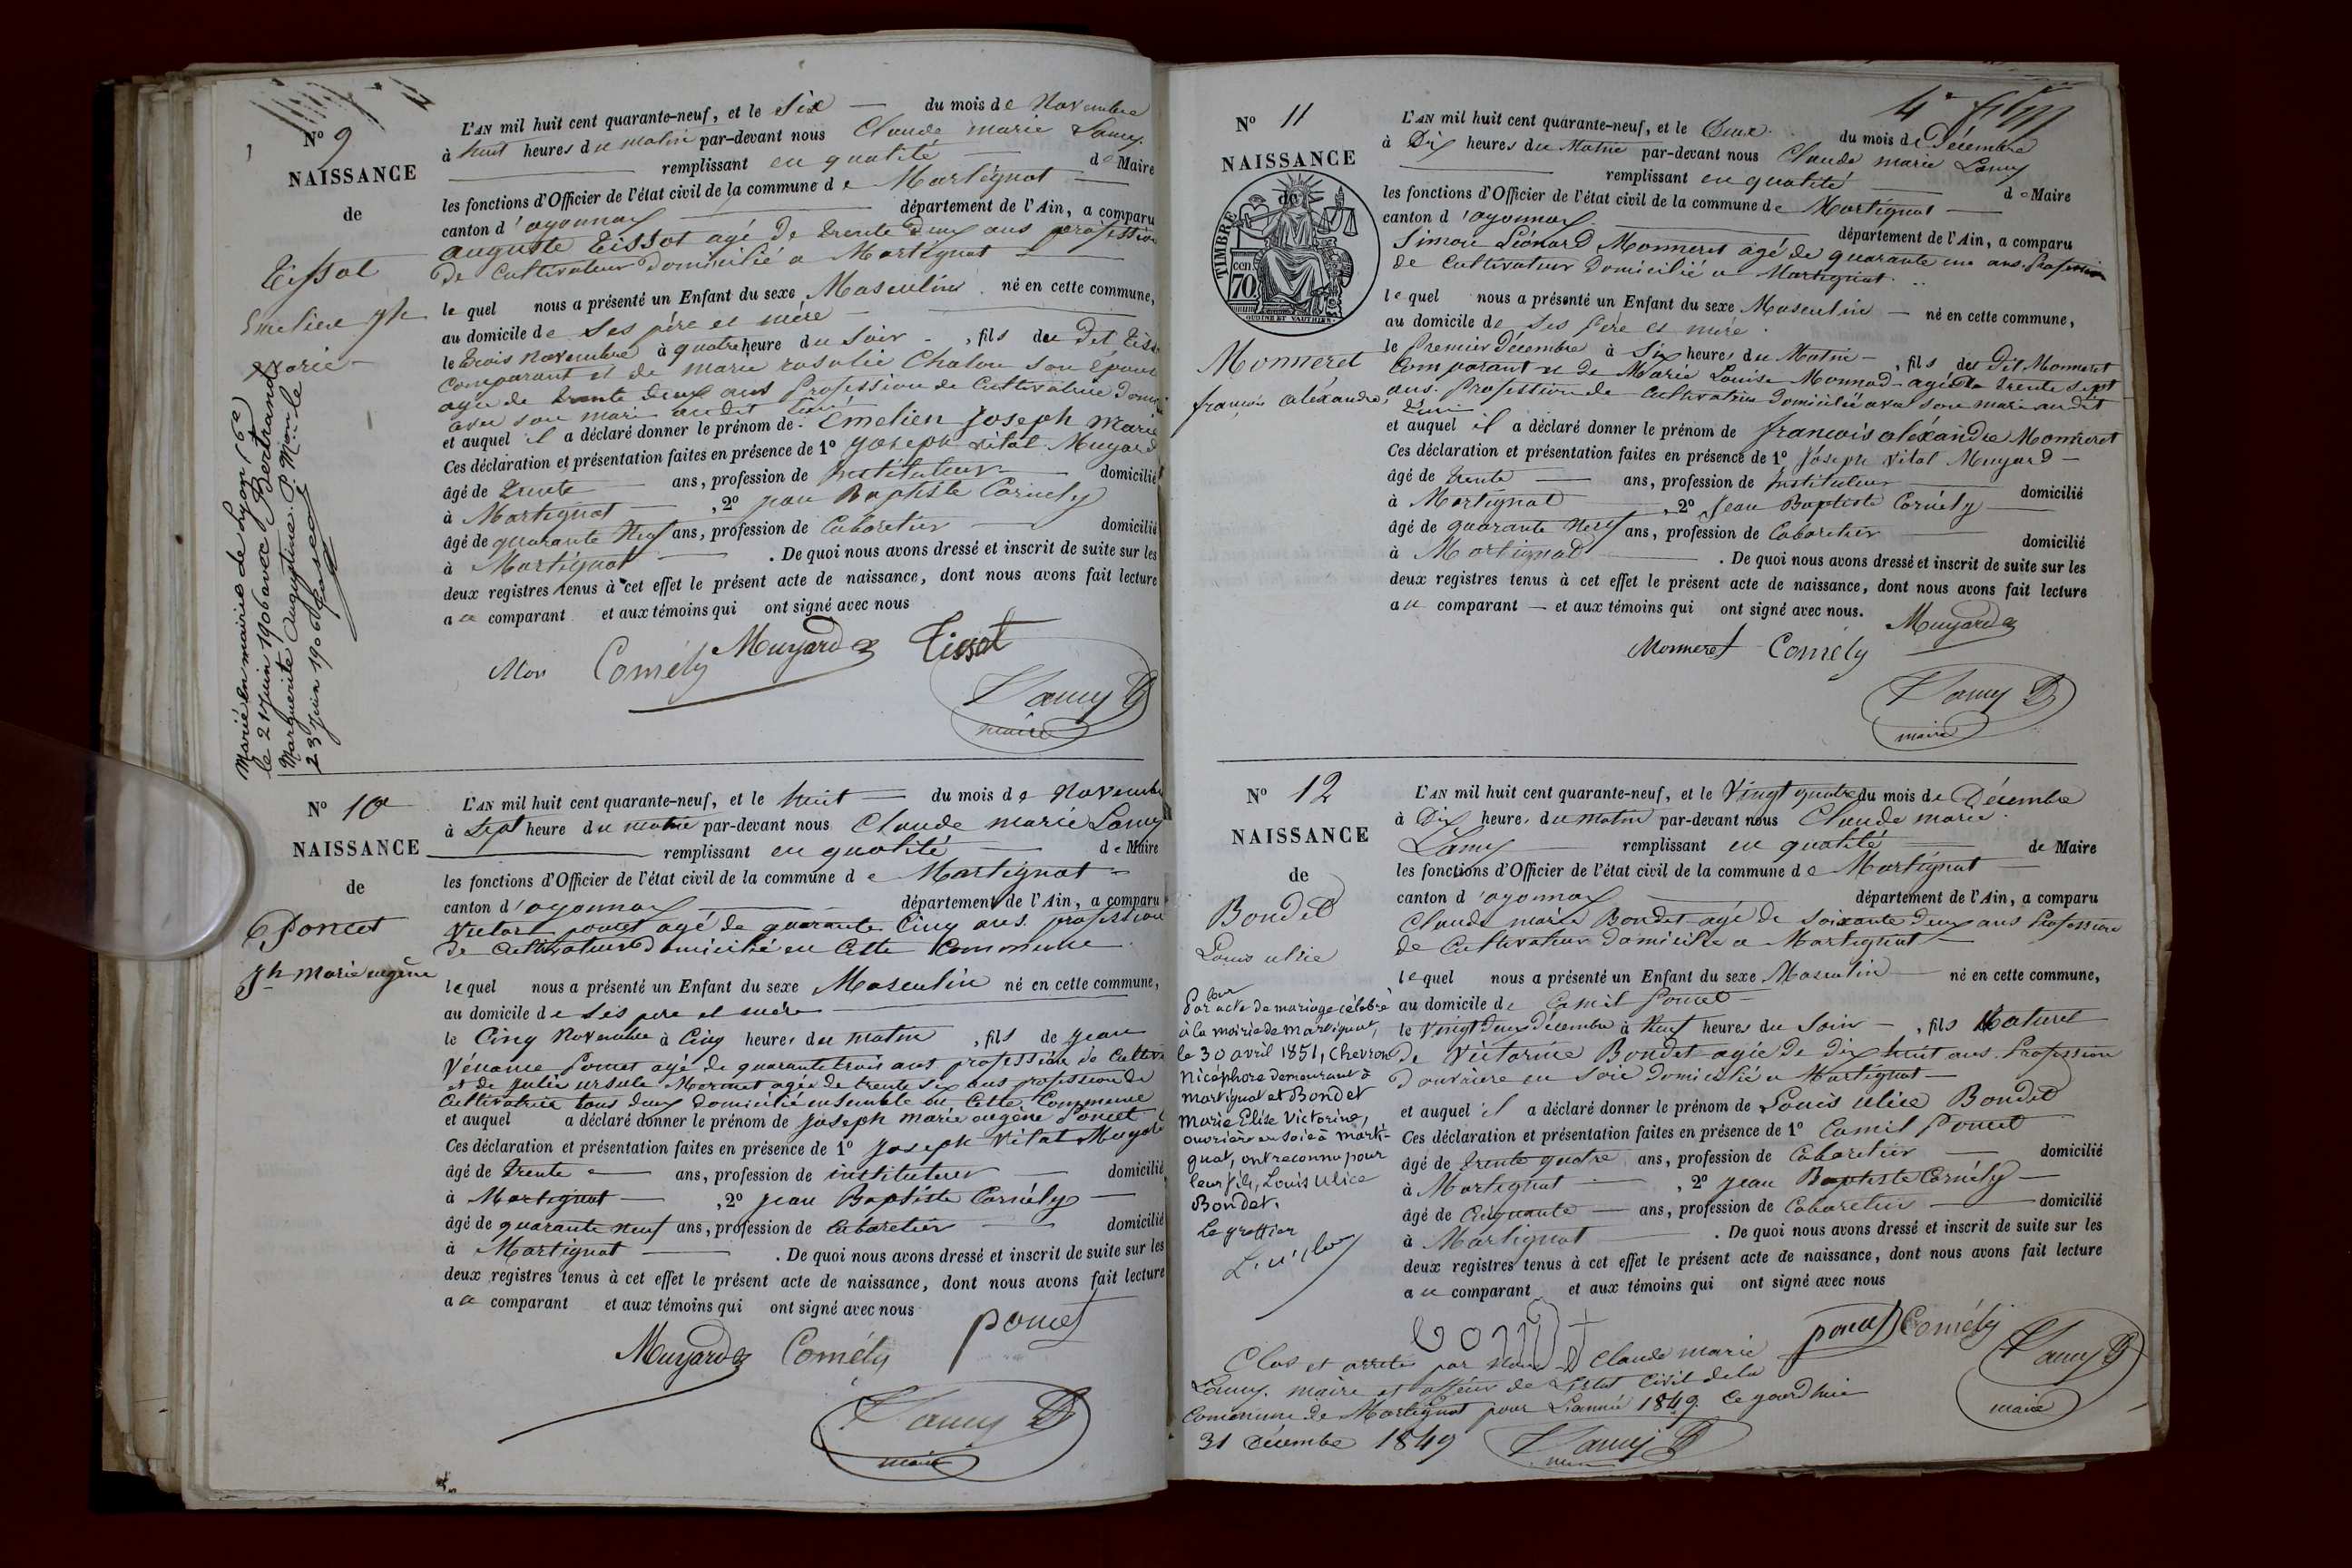 Nº 9
NAISSANCE
de
Tissot
Emelien Jh
Marie
Marié en mairie de Lyon (6e)
le 21 juin 1906 avec Bertrand
Marguerite Augustine. P. Mon le
23 juin 1906
L'AN mil huit cent quarante-neuf, et le Six du mois de Novembre
à huit heures du matin par-devant nous Claude marie Lamy
remplissant en qualité de Maire
les fonctions d'Officier de l'état civil de la commune de Martignat
canton d'oyonnax département de l'Ain, a comparu
auguste Tissot agé de trente deux ans profession
de Cultivateur domicilié a Martignat
le quel nous a présenté un Enfant du sexe Masculin né en cette commune,
au domicile de Ses père et mère
le trois novembre à quatre heure du Soir, fils du dit Tiss
comparant et de marie rosalie Chalon son épouse
agée de trente deux ans Profession de Cultivatrice domi
avec son mari audit lieu
et auquel il a déclaré donner le prénom de Emelien Joseph Marie
Ces déclaration et présentation faites en présence de 1º joseph vital Muyard
âgé de trente ans, profession de Instituteur domicilié
à Martignat, 2º jean Baptiste Cornély
âgé de quarante Neuf ans, profession de Cabaretier domicilié
à Martignat. De quoi nous avons dressé et inscrit de suite sur les
deux registres tenus à cet effet le présent acte de naissance, dont nous avons fait lecture
a ce comparant et aux témoins qui ont signé avec nous
Mon Cornély Muyard Tissot
Lamy
maire
Nº 10
NAISSANCE
de
Poncet
Jh Marie eugène
L'AN mil huit cent quarante-neuf, et le huit du mois de Novembre
à Sept heure du matin par-devant nous Claude marie Lamy
remplissant en qualité de Maire
les fonctions d'Officier de l'état civil de la commune de Martignat
canton d'oyonnax département de l'Ain, a comparu
Victor poncet agé de quarante Cinq ans. profession
de Cultivateur domicilié en Cette Commune
lequel nous a présenté un Enfant du sexe Masculin né en cette commune,
au domicile de Ses pere et mère
le Cinq Novembre à Cinq heures du matin, fils de jean
Vénance Poncet agé de quarante trois ans profession de Cultiva
et de julie ursule Mermet agée de trente six ans profession de
Cultivatrice tous deux domicilié ensemble en Cette Commune
et auquel a déclaré donner le prénom de joseph marie eugène Poncet
Ces déclaration et présentation faites en présence de 1º joseph Vital Muyard
âgé de trente ans, profession de instituteur domicilié
à Martignat, 2º jean Baptiste Cornély
âgé de quarante neuf ans, profession de Cabaretier domicilié
à Martignat. De quoi nous avons dressé et inscrit de suite sur les
deux registres tenus à cet effet le présent acte de naissance, dont nous avons fait lecture
a ce comparant et aux témoins qui ont signé avec nous
Muyard Cornély poncet
Lamy
maire
4e
Nº 11
NAISSANCE
de
TIMBRE
cen. 70
OUDINE ET VAUTHIER
Monneret
françois alexandre
L'AN mil huit cent quarante-neuf, et le Deux du mois de Décembre
à Dix heures du Matin par-devant nous Claude marie Lamy
remplissant en qualité de Maire
les fonctions d'Officier de l'état civil de la commune de Martignat
canton d'oyonnax département de l'Ain, a comparu
Simon Léonard Monneret agé de quarante un ans. Profession
de Cultivateur Domicilié a Martignat
le quel nous a présenté un Enfant du sexe Masculin né en cette commune,
au domicile de Ses Père et mère
le Premier Décembre à Six heures du Matin, fils du dit Monneret
Comparant et de Marie Louise Monnod agée de trente sept
ans. Profession de Cultivatrice domicilié avec son mari audit
Lieu
et auquel il a déclaré donner le prénom de françois alexandre Monneret
Ces déclaration et présentation faites en présence de 1º joseph vital Muyard
âgé de trente ans, profession de Instituteur domicilié
à Martignat, 2º Jean Baptiste Cornély
âgé de quarante Neuf ans, profession de Cabaretier domicilié
à Martignat. De quoi nous avons dressé et inscrit de suite sur les
deux registres tenus à cet effet le présent acte de naissance, dont nous avons fait lecture
a ce comparant et aux témoins qui ont signé avec nous.
Muyard
Monneret Cornély
Lamy
maire
Nº 12
NAISSANCE
de
Bondet
Louis ulice
Par leur acte de mariage célébré
à la mairie de Martignat,
le 30 avril 1851, Chevron
Nicéphore demeurant à
Martignat et Bondet
Marie Elise Victorine,
ouvrière en soie à Marti-
gnat, ont reconnu pour
leur fils, Louis Ulice
Bondet.
Le greffier
L'AN mil huit cent quarante-neuf, et le Vingt quatre du mois de Décembre
à Dix heures du matin par-devant nous Claude marie
Lamy remplissant en qualité de Maire
les fonctions d'Officier de l'état civil de la commune de Martignat
canton d'oyonnax département de l'Ain, a comparu
Claude marie Bondet agé de Soixante deux ans Profession
de Cultivateur domicilié a Martignat
lequel nous a présenté un Enfant du sexe Masculin né en cette commune,
au domicile de Camil Poncet
le Vingt deux décembre à Neuf heures du Soir, fils Naturel
de Victorine Bondet agée de dix huit ans. Profession
d'ouvriere en Soie domicilié a Martignat
et auquel il a déclaré donner le prénom de Louis ulice Bondet
Ces déclaration et présentation faites en présence de 1º Camil Poncet
âgé de trente quatre ans, profession de Cabaretier domicilié
à Martignat, 2º jean Baptiste Cornély
âgé de Cinquante ans, profession de Cabaretier domicilié
à Martignat. De quoi nous avons dressé et inscrit de suite sur les
deux registres tenus à cet effet le présent acte de naissance, dont nous avons fait lecture
a ce comparant et aux témoins qui ont signé avec nous
bondet poncet Cornély
Lamy
maire
Clos et arrêté par Nous Claude marie
Lamy. maire et officier de L'état Civil de la
Commune de Martignat pour L'année 1849. Ce jourd'hui
31 Décembre 1849 Lamy
maire